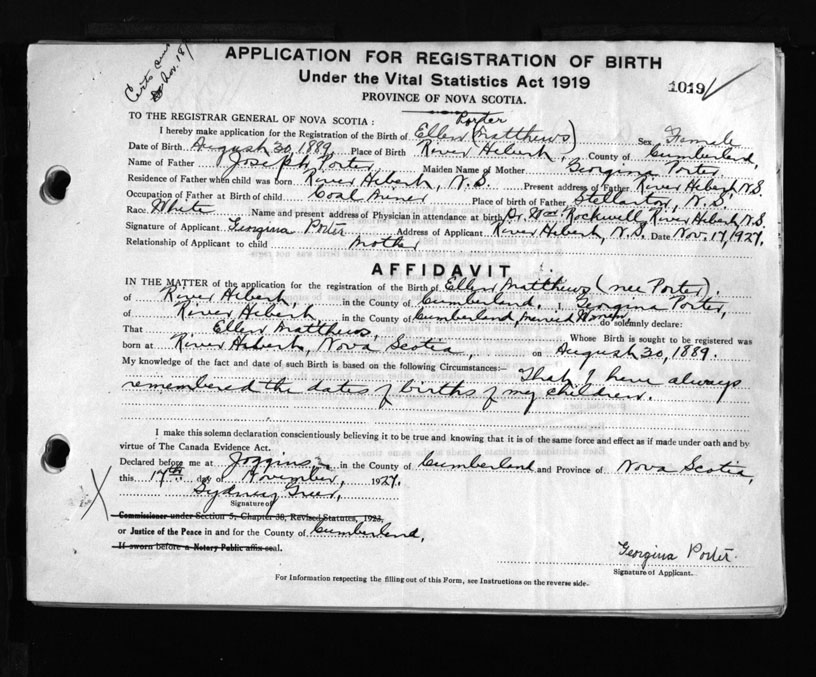 Certs
Nov. 18/
APPLICATION FOR REGISTRATION OF BIRTH
Under the Vital Statistics Act 1919
1019
PROVINCE OF NOVA SCOTIA.
TO THE REGISTRAR GENERAL OF NOVA SCOTIA:
Porter
I hereby make application for the Registration of the Birth of Ellen (Matthews) Sex Female
Date of Birth August 30, 1889 Place of Birth River Hebert, County of Cumberland,
Name of Father Joseph Porter Maiden Name of Mother Georgina Porter
Residence of Father when child was born River Hebert, N.S. Present address of Father River Hebert, N.S.
Occupation of Father at Birth of child Coal Miner Place of birth of Father Stellarton, N.S.
Race White Name and present address of Physician in attendance at birth Dr. Wm Rockwell, River Hebert, N.S.
Signature of Applicant Georgina Porter Address of Applicant River Hebert, N.S. Date Nov. 17, 1927.
Relationship of Applicant to child Mother
AFFIDAVIT
IN THE MATTER of the application for the registration of the Birth of Ellen Matthews (nee Porter).
of River Hebert, in the County of Cumberland. I Georgina Porter,
of River Hebert in the County of Cumberland, Married Woman do solemnly declare:
That Ellen Matthews, Whose Birth is sought to be registered was
born at River Hebert, Nova Scotia, on August 30, 1889.
My knowledge of the fact and date of such Birth is based on the following Circumstances:— That I have always
remembered the dates of births of my children.
I make this solemn declaration conscientiously believing it to be true and knowing that it is of the same force and effect as if made under oath and by
virtue of The Canada Evidence Act.
Declared before me at Joggins in the County of Cumberland and Province of Nova Scotia,
this 17th day of November, 1927.
Sydney
Signature of
Commissioner under Section 5, Chapter 38, Revised Statutes, 1923,
or Justice of the Peace in and for the County of Cumberland,
If sworn before a Notary Public affix seal.
Georgina Porter
Signature of Applicant.
For Information respecting the filling out of this Form, see Instructions on the reverse side.